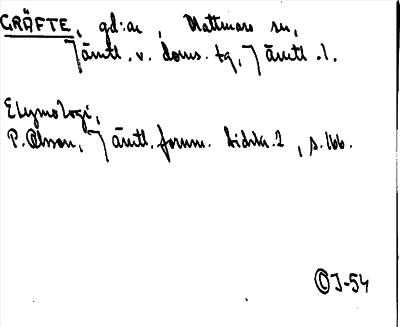 GRÄFTE, gd:ar, Mattmars sn,
Jämtl. v. doms. tg, Jämtl. l.
Etymologi,
P. Olsson, Jämtl. fornm. tidskr. 2, s. 166.
© J-54